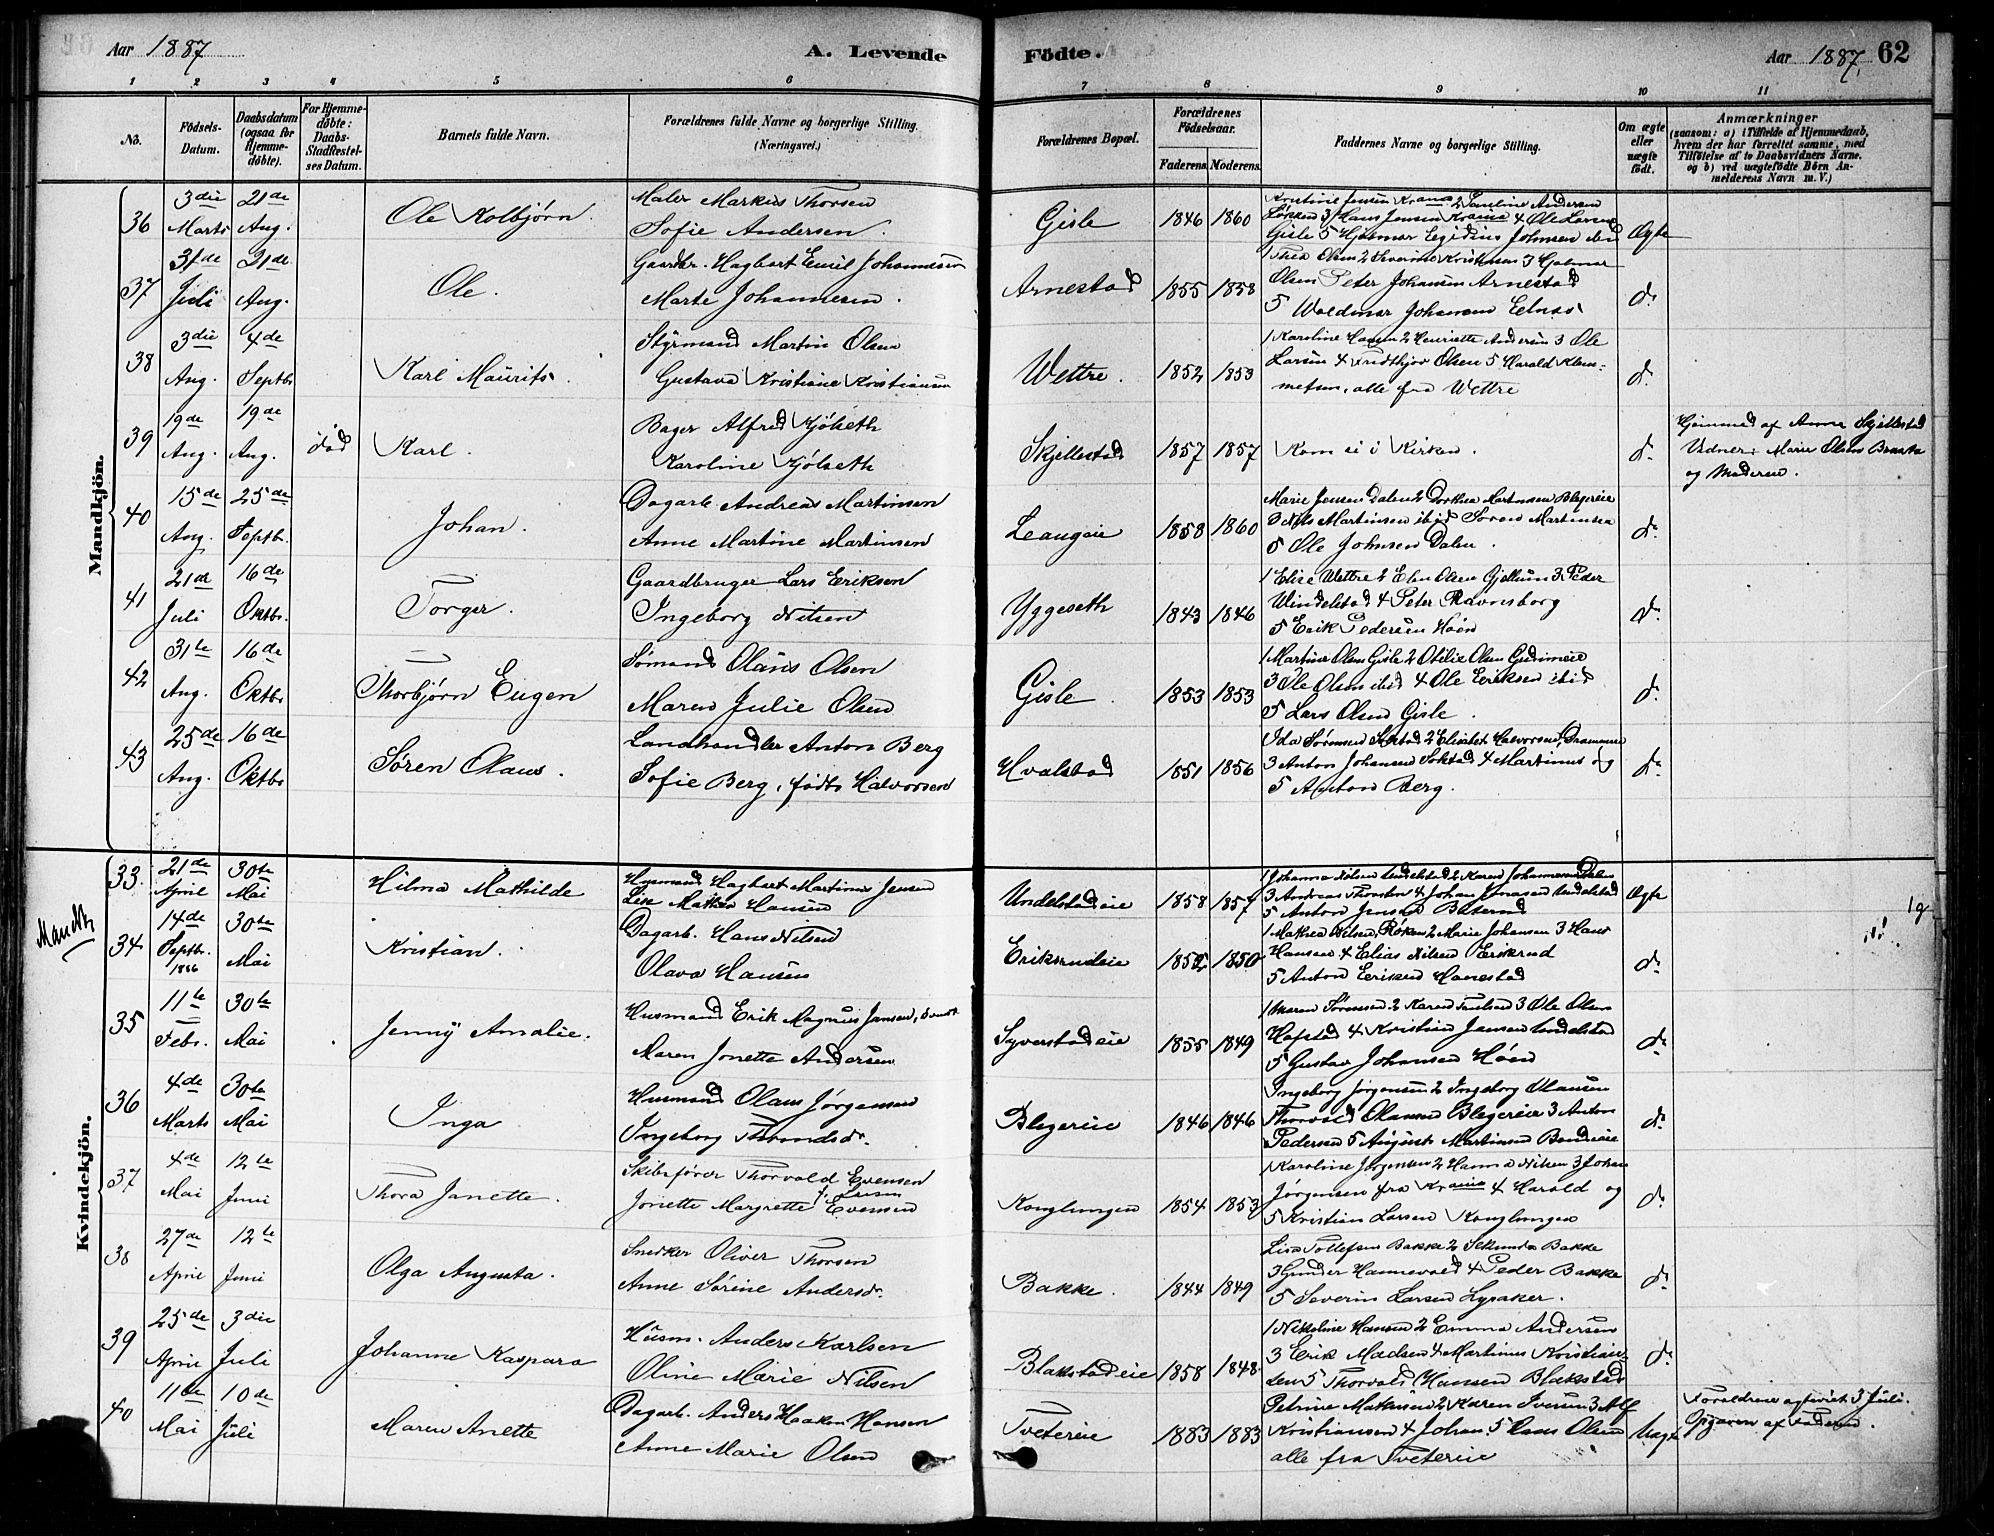 Aar 1887 A. Levende Fødte. Aar 1887. 62
1 2 3 4 5 6 7 8 9 10 11
No. Fødsels-Datum. Daabsdatum (ogsaa for Hjemme-døbte). For Hjemme-døbte: Daabs-Stadfæstel-ses Datum. Barnets fulde Navn. Forældrenes fulde Navne og borgerlige Stilling. (Næringsvei.) Forældrenes Bopæl. Forældrenes Fødselsaar. Faderens Moderens. Faddernes Navne og borgerlige Stilling. Om ægte eller uægte født. Anmærkninger (saasom: a) i Tilfælde af Hjemmedaab, hvem der har forrettet samme, med Tilføielse af to Daabsvidners Navne. og b) ved uægtefødte Børn An-melderens Navn m. V.)
Mandkjön.
36 3die Marts 21de Aug. Ole Kolbjørn. Maler Markus Thorsen
Sofie Andersen. Gisle 1846 1860 Kristine Jensen 2 Pauline Andersen
3 Hans Jensen 4 Ole Larsen
Gisle 5 Hjalmar Egidius Johnsen ibid Ægte
37 31de Juli 21de Aug. Ole. Gaardbr. Hagbart Emil Johannesen
Marte Johannesen. Arnestad 1855 1858 1 Thea Olsen 2 Severine Kristensen 3 Hjalmar
Olsen Peter Johansen Arnestad
5 Waldmar Johansen d.
38 3die Aug. 4de Septbr Karl Maurits. Styrmand Martin Olsen
Gustava Kristiane Kristiansen Wettre. 1852 1853 1 Karoline Hansen 2 Henriette Andersen 3 Ole
Larsen 4 Fridthjov Olsen 5 Harald Klem-
metsen, alle fra Wettre d.
39 19de Aug. 19de Aug. død Karl. Bager Alfred Kjølseth
Karoline Kjølseth Skjellestad 1857 1857 Kom ei i Kirken. d. Hjemmed af Anne Skjellestad
Vidner: Marie Olsen
og Moderen.
40 15de Aug. 25de Septb. Johan. Dagarb. Andreas Martinsen
Anne Martine Martinsen Leangeie 1858 1860 Marie Jensen Dalen 2 Dorthea Martinsen Blegereie
3 Nils Martinsen ibid Søren Martinsen
5 Ole Johnsen Dalen. d.
41 21de Juli 16de Oktbr. Torger. Gaardbruger Lars Eriksen
Ingeborg Nilsen Yggeseth 1843 1846 1 Elise Wettre 2 Elen Olsen Gjellum 3 Peder
Windelstad 4 Peter Ravnsborg
5 Erik Pedersen Høn d.
42 31te Aug. 16de Oktbr Thorbjørn Eugen Sømand Olaus Olsen
Maren Julie Olsen Gisle. 1853 1853 1 Martine Olsen Gisle 2 Otilie Olsen
3 Ole Olsen ibid 4 Ole Eriksen ibid
5 Lars Olsen Gisle. d.
43 25de Aug. 16de Oktbr Søren Olaus. Landhandler Anton Berg
Sofie Berg, født Halvorsen Hvalstad 1851 1856 1 Ida Sørensen 2 Elisabet Halvorsen, Drammen
3 Anton Johansen 4 Martinus og
5 Anton Berg. d.
Kvindekjön.
33 21de April 30te Mai Hilma Mathilde Husmand Hagbart Martinus Jensen
Lise Mathea Hansen Undelstadeie 1858 1857 1 Johanna Nilsen Undelstad 2 Karen Johannesen Dalen
3 Andreas Thorsten 4 Johan Jonasen Undelstad
5 Anton Jensen Ægte
Mandkj 34 14de Septbr. 1886 30te Mai Kristian. Dagarb. Hans Nilsen
Olava Hansen Eriksrudeie 1852 1850 1 Mathea Nilsen, Røken 2 Marie Johansen 3 Hans
Hansen 4 Elias Nilsen Eriksrud
5 Anton Eriksen Hanestad d.
35 11te Febr. 30te Mai Jenny Amalie. Husmand Erik Magnus Jansen,
Maren Jonette Andersen Syverstadeie 1855 1849 1 Maren Sørensen 2 Karen Paulsen 3 Ole Olsen
Hofstad 4 Kristian Jansen Undelstad
5 Gustav Johansen Høn d.
36 4de Marts 30te Mai Inga Husmand Olaus Jørgensen
Ingeborg Throndsdr. Blegereie 1846 1846 Ingeborg Jørgensen 2 Ingeborg Olausen
Thorvald Olausen Blegereie 3 Anton
Pedersen 5 August Martinsen Bondieie d.
37 4de Mai 12te Juni Thora Janette. Skibsfører Thorvald Evensen
Jonette Margrette f. Larsen Evensen Konglungen 1854 1853 1 Karoline Jørgensen 2 Hanna Nilsen 3 Johan
Jørgensen fra 4 Harald og
5 Kristian Larsen Konglungen d.
38 27de April 12te Juni Olga Augusta. Snedker Oliver Thorsen
Anne Sørine Andersdr. Bakke. 1844 1849 Lise Tollefsen Bakke 2 Sekunda Bakke
3 Gunder Hannevold 4 Peder Bakke
5 Severin Larsen Lysaker. d.
39 25de April 3die Juli Johanne Kaspara Husm. Anders Karlsen
Oline Marie Nilsen Blakstadeie 1858 1848 1 Nikoline Hansen 2 Emma Andersen
3 Erik Madsen 4 Martinus Kristian-
sen 5 Thorvald Hansen Blakstad d.
40 11te Mai 10de Juli Maren Anette Dagarb. Anders Haaken Hansen
Anne Marie Olsen Tvetereie 1883 1883 Petrine Mathisen 2 Karen Iversen 3 Alf
Kristiansen 4 Johan 5 Hans Olsen
alle fra Tvetereie Uægte Forældrene agteviet 3 Juli.
Opgaven af Faderen.